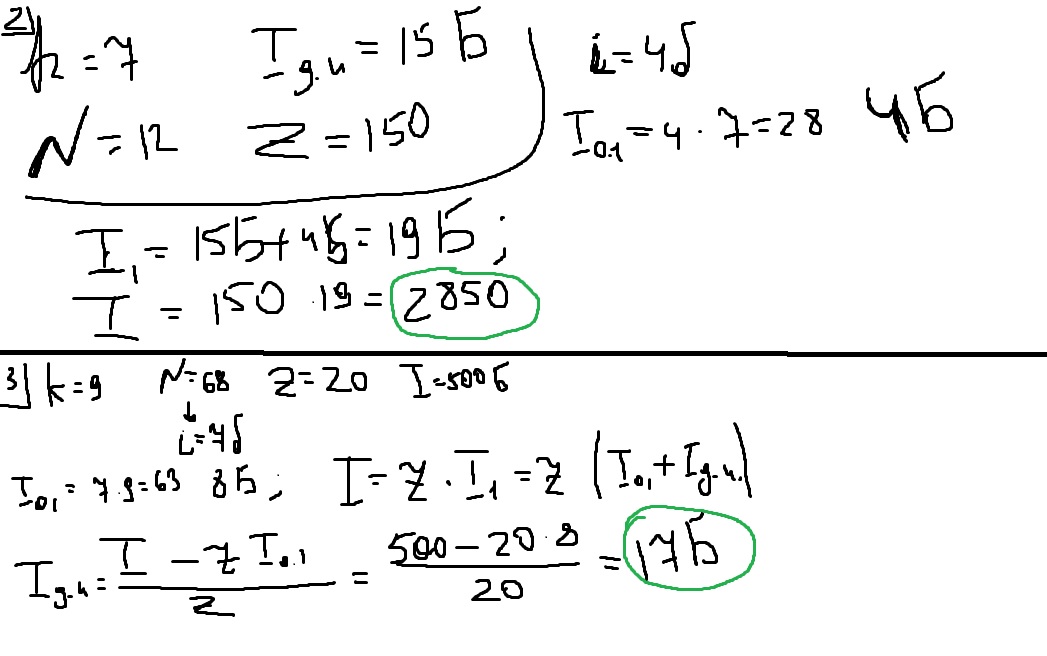 2) k = 7 I д.и = 15 Б i = 4 б
N = 12 Z = 150 I 0.1 = 4 · 7 = 28 4 Б
I 1 = 15Б + 4Б = 19 Б ;
I = 150 · 19 = 2850
3) k = 9 N = 68 Z = 20 I = 500 Б
↓
i = 7 б
I 0,1 = 7 · 9 = 63 8 Б ; I = Z · I 1 = Z ( I 0,1 + I д.и. )
I д.и = (I − Z I 0.1) / Z = (500 − 20 · 8) / 20 = 17 Б